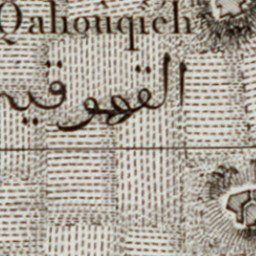 Qahoûqyeh
القهوقيه